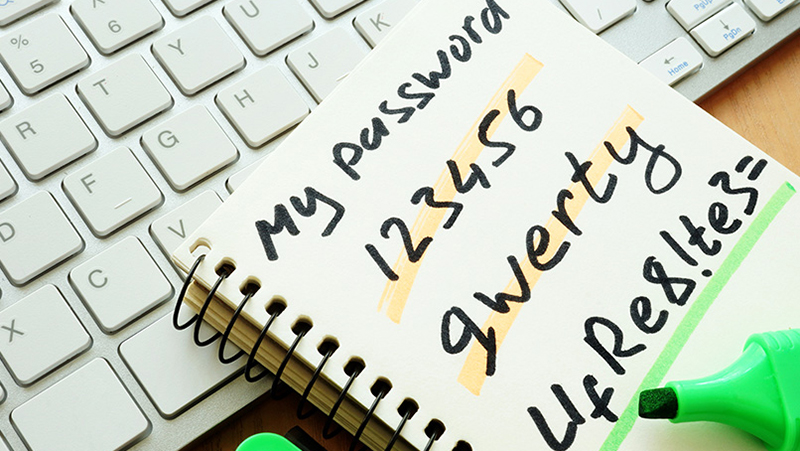 My password
123456
qwerty
UfRe8!te3=
%
5
^
6
R T Y U
D F G H J K
X C V
Home
PgUp
PgDn